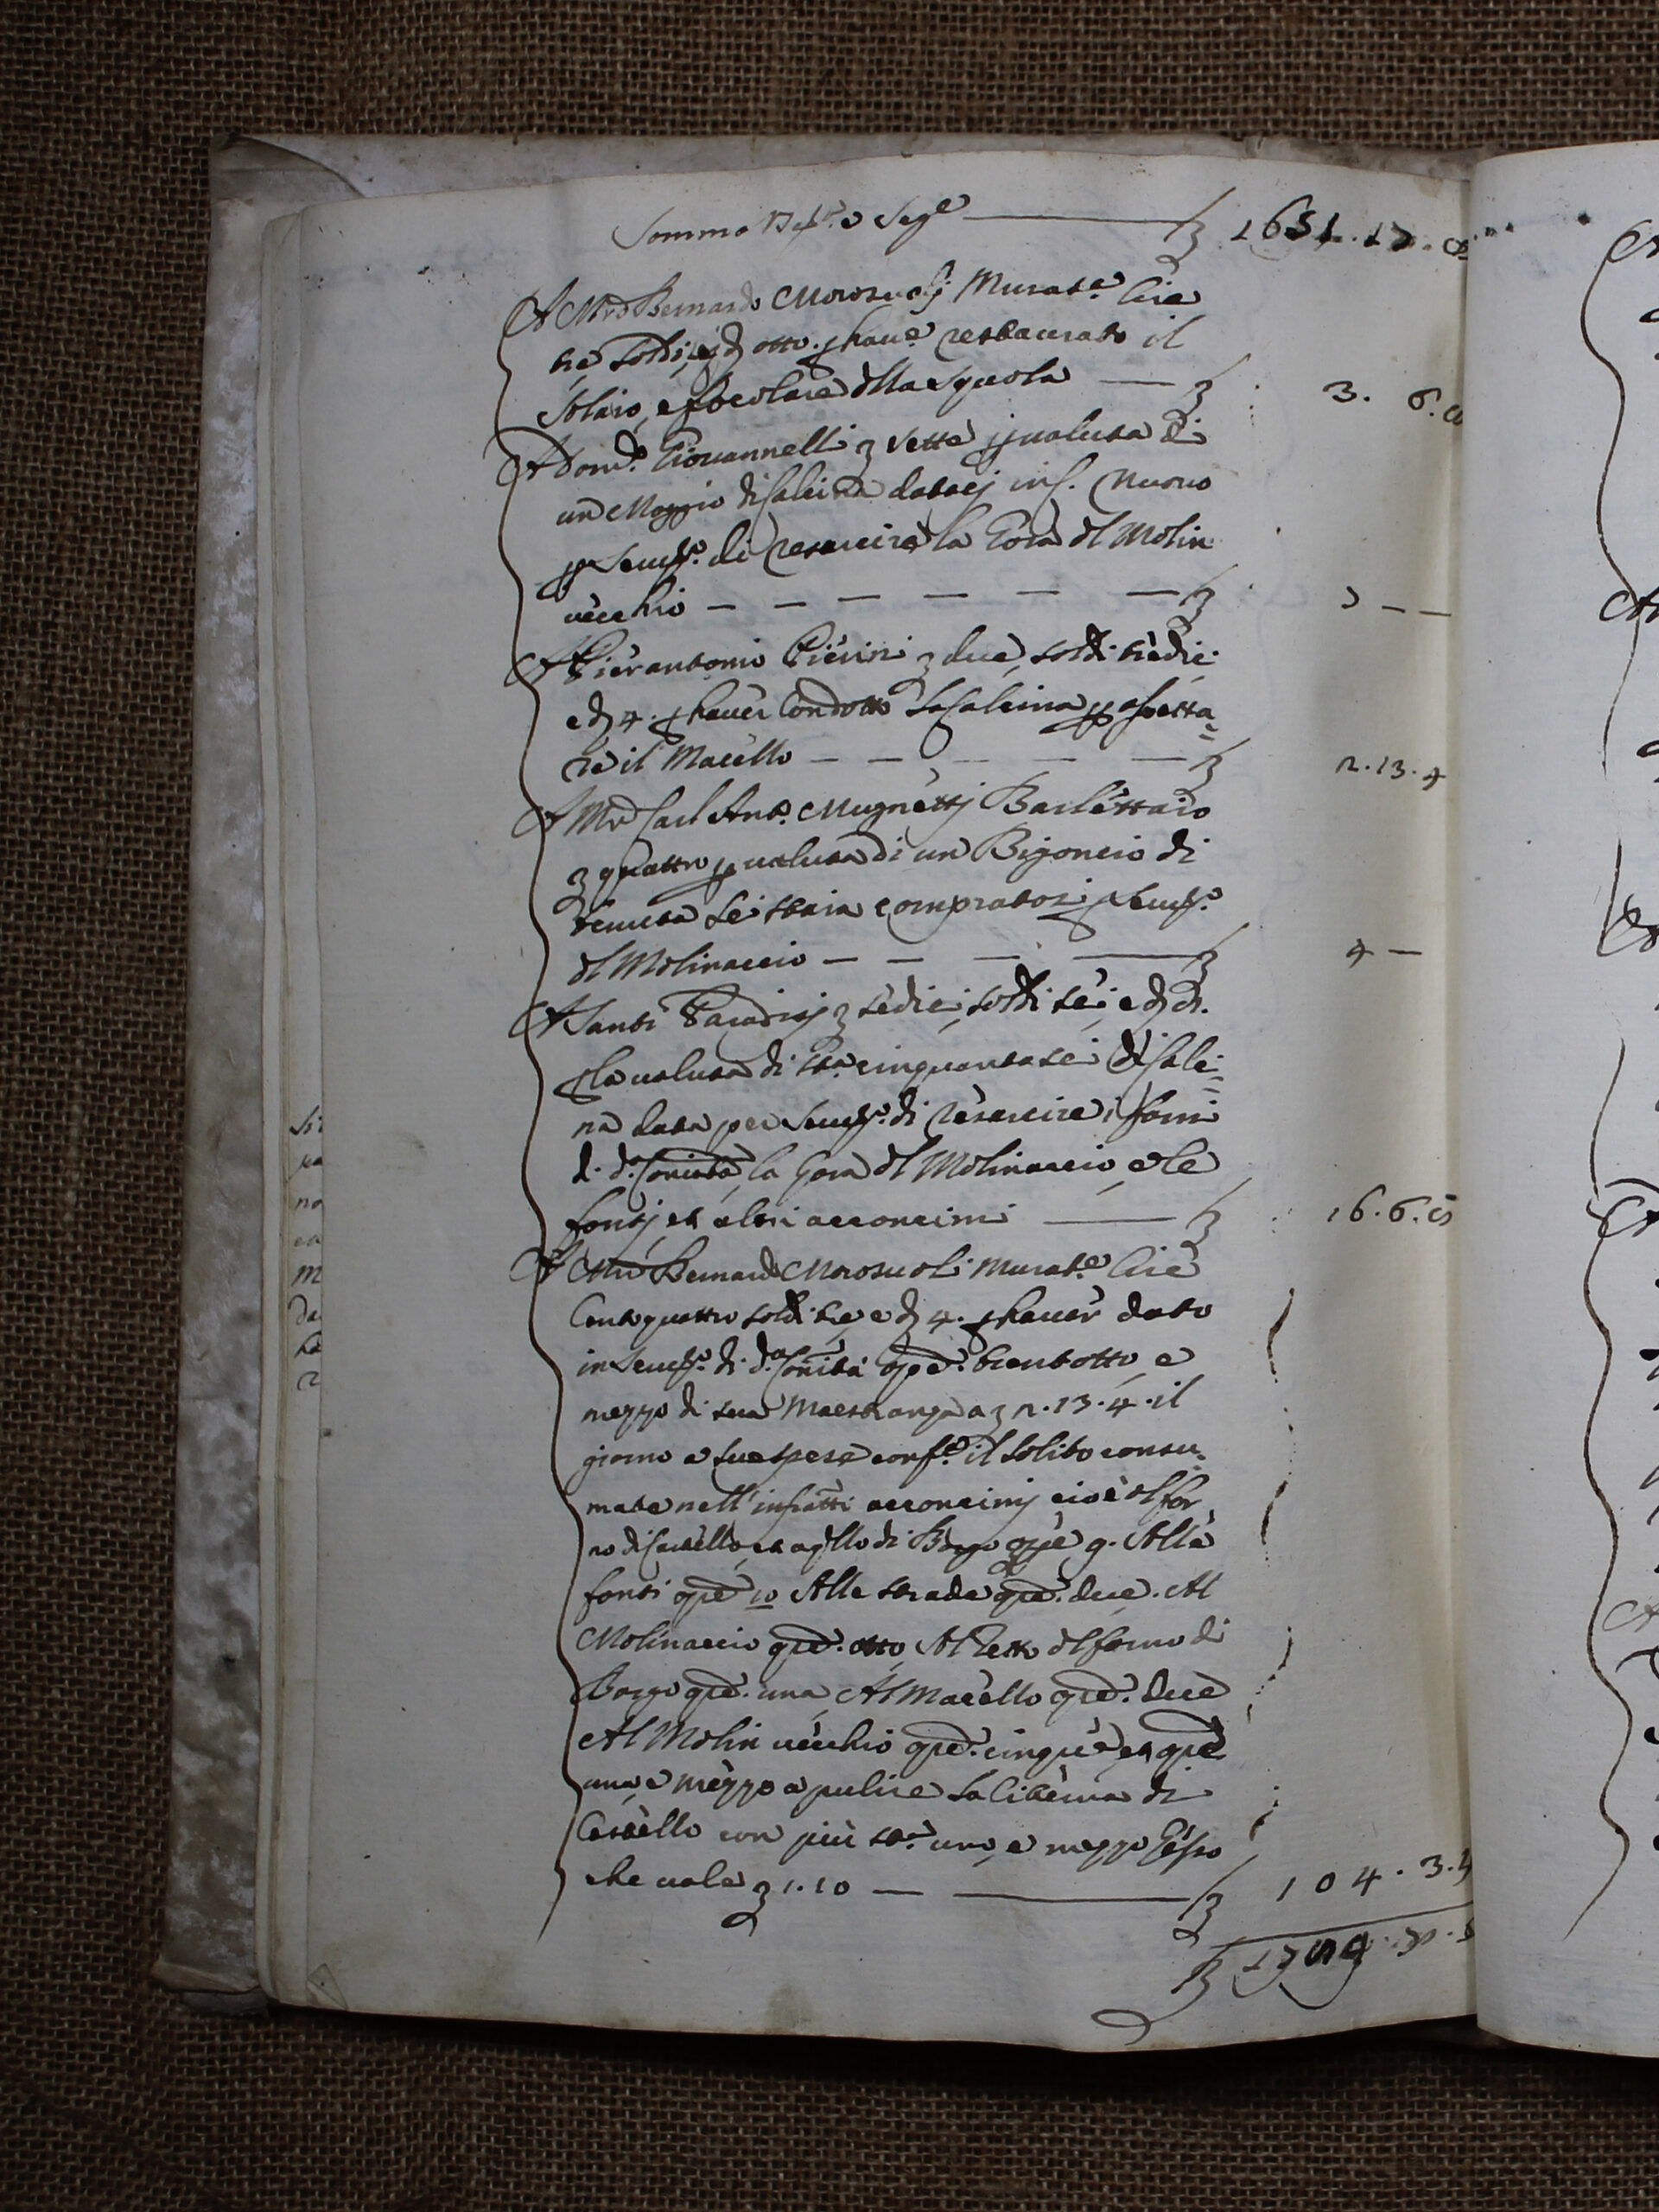 Somma e segᵉ 1651.17.8
A Mro Bernardo Morosuolj Muratᵉ lire
tre soldi sei e d otto p hauᵉ restaurato il
solaio, e focolare dlla squola — 3. 6. 8
A Domᵒ Giouannelli sette p ualuta di
un Moggio di Calcina datoci in Nuouo
p seruᵒ di resarcire la Gora dl Molin
uecchio — — — — — — 7 — —
A Pierantonio Pierini due, soldi tredici
e d 4. p hauer Condotto la Calcina p assetta=
re il Macello — — — — — 2.13.4
A Mro Carl Antᵒ Mugnettj Barlettaio
quattro p ualuta di un Bigoncio di
tenuta sei staia compratosi p seruᵒ
dl Molinaccio — — — — 4 —
A Santi sedici, soldi sei, e d 8.
p la ualuta di staᵃ cinquantasei di Calci=
na data per seruᵒ di resarcire i forni
di dᵃ Comᵗà, la Gora dl Molinaccio, e le
fontj, et altri acconcimi — 16.6.8
A Mro Bernardo Morosuoli Muratᵉ lire
Centoquattro soldi tre, e d 4. p hauer dato
in seruᵒ di dᵃ Comᵗà opᵉ trentotto, e
mezzo di sua Maestranza a 2.13.4. il
giorno a sue spese confᵉ il solito consu=
mate nell' infratti acconcimj cioè al for
no di Castello, et a qllo di Borgo opᵉ 9. Alle
fonti opᵉ 10 Alle strade opᵉ due. Al
Molinaccio opᵉ otto, Al Tetto dl forno di
Borgo opᵉ una, Al Macello opᵉ due
Al Molin uecchio opᵉ cinque, et opᵉ
una, e mezzo a pulire la Citerna di
Castello con più staᵃ uno, e mezzo Gesso
che uale 1.10 — — 104.3.4